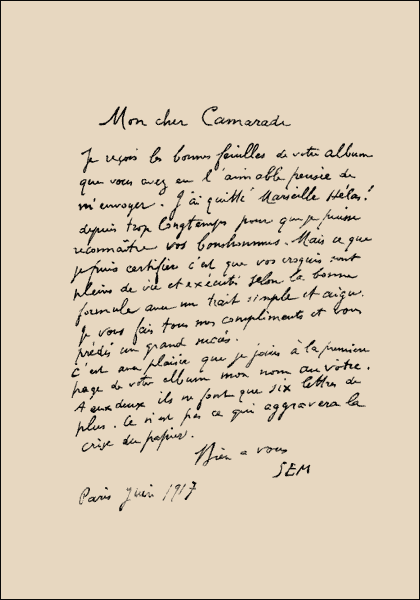 Mon cher Camarade
Je reçois les bonnes feuilles de votre album
que vous avez eu l'aimable pensée de
m'envoyer. J'ai quitté Marseille Hélas!
depuis trop longtemps pour que je puisse
reconnaître vos bonhommes. Mais ce que
je puis certifier c'est que vos croquis sont
pleins de vie et exécutés selon la bonne
formule avec un trait simple et aigu.
Je vous fais tous mes compliments et vous
prédis un grand succès.
C'est avec plaisir que je joins à la première
page de votre album mon nom au votre.
A eux deux ils ne font que six lettres de
plus. Ce n'est pas ce qui aggravera la
crise du papier.
Bien a vous
SEM
Paris Juin 1917